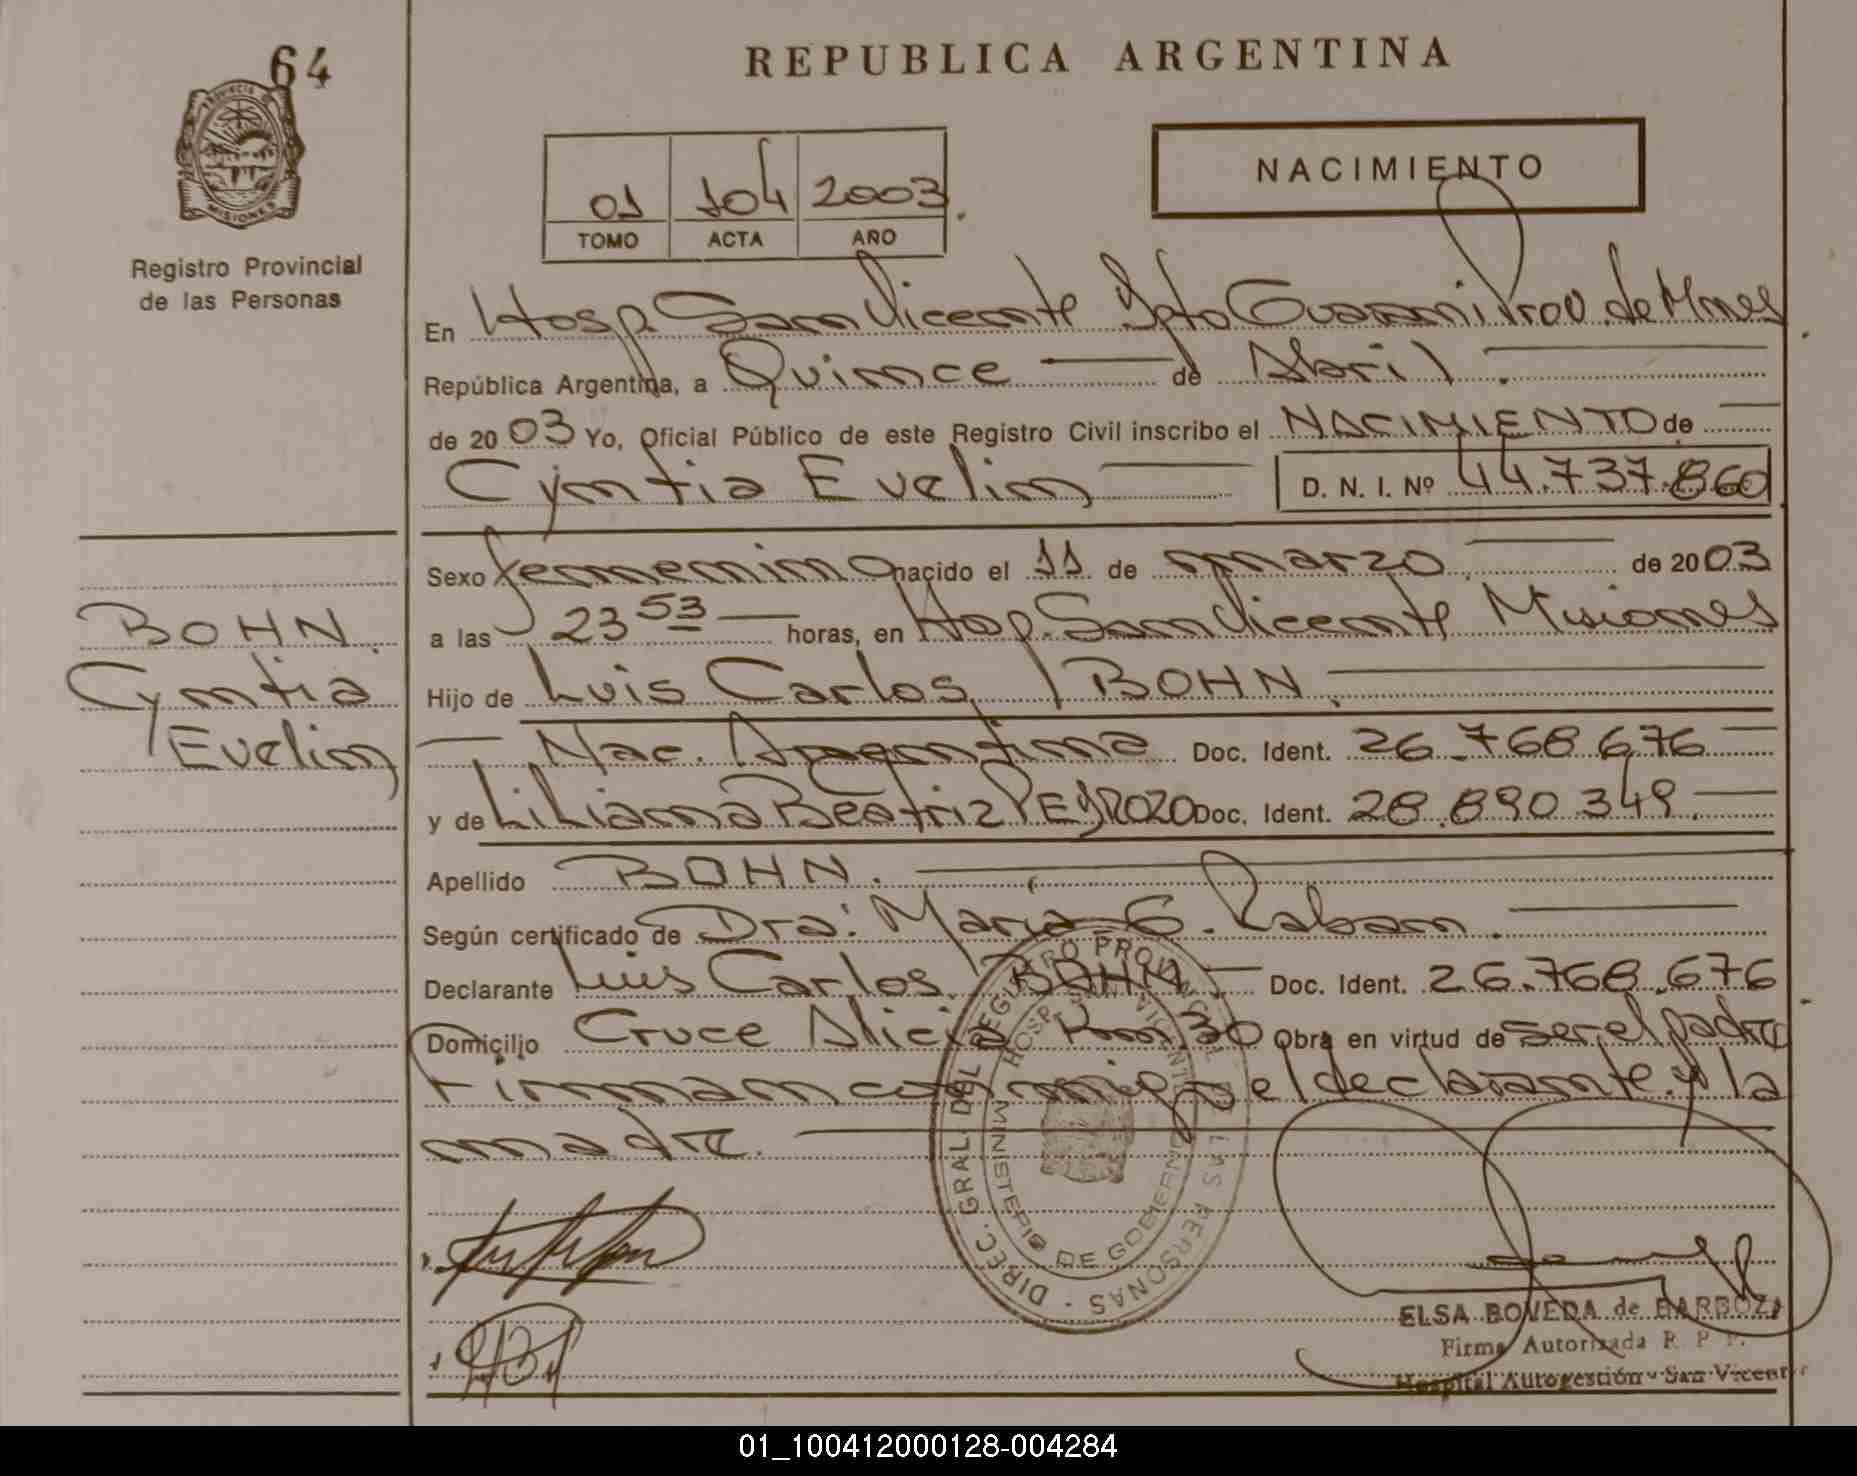 64
REPUBLICA ARGENTINA
PROVINCIA DE
MISIONES
Registro Provincial
de las Personas
NACIMIENTO
01 104 2003
TOMO ACTA AÑO
En Hosp. San Vicente Dpto Guarani Prov. de Mnes
República Argentina, a Quince de Abril
de 2003 Yo, Oficial Público de este Registro Civil inscribo el NACIMIENTO de
Cyntia Evelin D. N. I. Nº 44.737.860
Sexo femenino nacido el 11 de marzo de 2003
a las 23 53 horas, en Hosp. San Vicente Misiones
Hijo de Luis Carlos BOHN.
Nac. Argentina Doc. Ident. 26.768.676
y de Liliana Beatriz PEDROZO Doc. Ident. 28.890.349.
Apellido BOHN.
Según certificado de Dra: Maria G. Laban.
Declarante Luis Carlos BOHN Doc. Ident. 26.768.676
Domicilio Cruce Alicia Km 30 Obra en virtud de ser el padre
Firman conmigo el declarante y la
madre.
BOHN
Cyntia
Evelin
DIREC. GRAL. DEL REGISTRO PROVINCIAL DE LAS PERSONAS
HOSP. SAN VICENTE
MINISTERIO DE GOBIERNO
ELSA BOVEDA de BARBOZA
Firma Autorizada R. P. P.
Hospital Autogestión - San Vicente
01_100412000128-004284